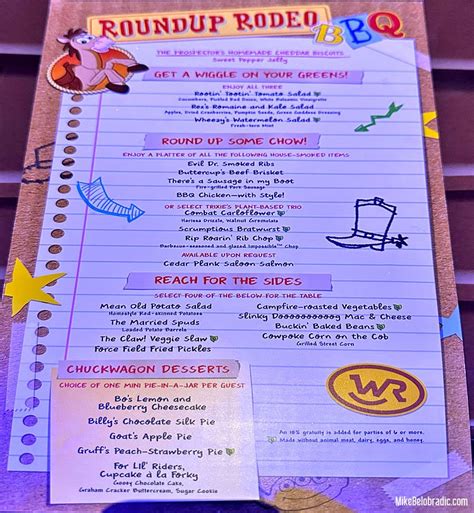 ROUNDUP RODEO
BBQ
THE PROSPECTOR'S HOMEMADE CHEDDAR BISCUITS
Sweet Pepper Jelly
GET A WIGGLE ON YOUR GREENS!
ENJOY ALL THREE
Rootin' Tootin' Tomato Salad
Cucumbers, Pickled Red Onion, White Balsamic Vinaigrette
Rex's Romaine and Kale Salad
Apples, Dried Cranberries, Pumpkin Seeds, Green Goddess Dressing
Wheezy's Watermelon Salad
Fresh-torn Mint
ROUND UP SOME CHOW!
ENJOY A PLATTER OF ALL THE FOLLOWING HOUSE-SMOKED ITEMS
Evil Dr. Smoked Ribs
Buttercup's Beef Brisket
There's a Sausage in my Boot
Fire-grilled Pork Sausage
BBQ Chicken-with Style!
OR SELECT TRIXIE'S PLANT-BASED TRIO
Combat Carloflower
Harissa, Dates, Walnut Gremolata
Scrumptious Bratwurst
Rip Roarin' Rib Chop
Barbecue-seasoned and glazed Impossible™ Chop
AVAILABLE UPON REQUEST
Cedar Plank Saloon Salmon
REACH FOR THE SIDES
SELECT FOUR OF THE BELOW FOR THE TABLE
Mean Old Potato Salad
Homestyle Red-skinned Potatoes
The Married Spuds
Loaded Potato Barrels
The Claw! Veggie Slaw
Force Field Fried Pickles
Campfire-roasted Vegetables
Slinky Doooooooooog Mac & Cheese
Buckin' Baked Beans
Cowpoke Corn on the Cob
Grilled Street Corn
CHUCKWAGON DESSERTS
CHOICE OF ONE MINI PIE-IN-A-JAR PER GUEST
Bo's Lemon and
Blueberry Cheesecake
Billy's Chocolate Silk Pie
Goat's Apple Pie
Gruff's Peach-Strawberry Pie
For Lil' Riders,
Cupcake à la Forky
Gooey Chocolate Cake,
Graham Cracker Buttercream, Sugar Cookie
WR
An 18% gratuity is added for parties of 6 or more.
Made without animal meat, dairy, eggs, and honey.
MikeBelobradic.com